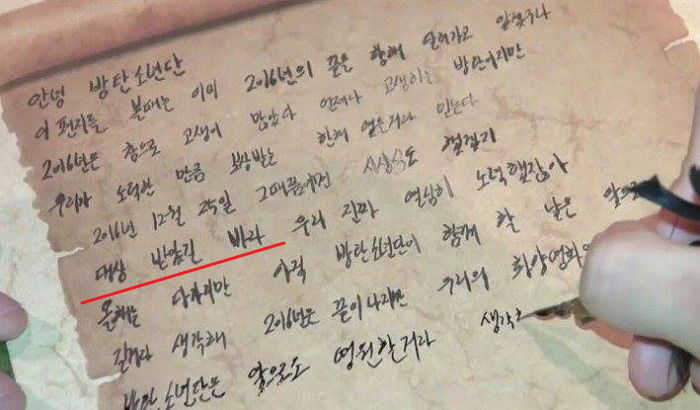 안녕 방탄소년단
이 편지를 볼때는 이미 2016년의 끝을 향해 달려가고 있겠구나
2016년은 참으로 고생이 많았다 언제나 고생하는 방탄이지만
우리가 노력한 만큼 보상받을 한해 였을거라 믿는다
2016년 12월 25일 그때쯤에면 시상식도 했겠지
대상 받았길 바라 우리 진짜 열심히 노력했잖아
올해는 다가지만 아직 방탄소년단이 함께 할 날은 앞으로
길거라 생각해 2016년은 끝이나지만 우리의 화양연화
방탄소년단은 앞으로도 영원할거라 생각